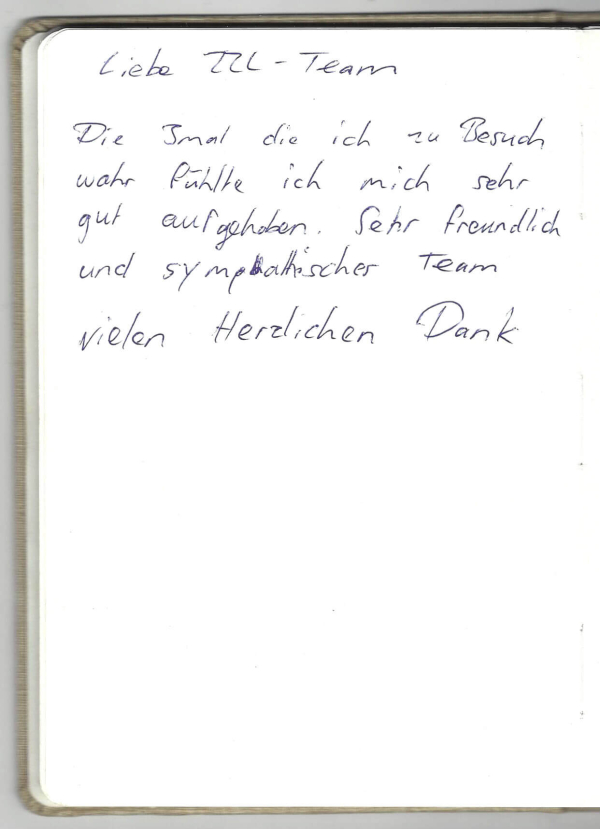 Liebe ZZL - Team
Die 3mal die ich zu Besuch
wahr fühlte ich mich sehr
gut aufgehoben. Sehr freundlich
und symphatischer Team
vielen Herzlichen Dank